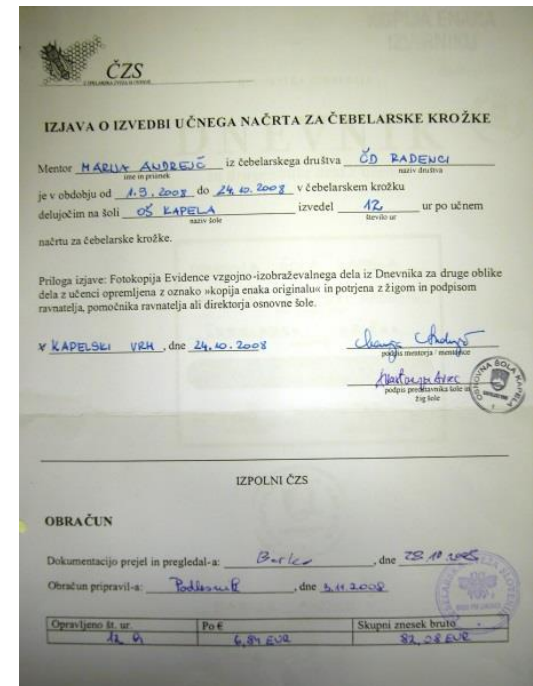 ČZS
ČEBELARSKA ZVEZA SLOVENIJE
IZJAVA O IZVEDBI UČNEGA NAČRTA ZA ČEBELARSKE KROŽKE
Mentor MARIJA ANDREJČ iz čebelarskega društva ČD RADENCI
ime in priimek naziv društva
je v obdobju od 1.9.2008 do 24.10.2008 v čebelarskem krožku
delujočim na šoli OŠ KAPELA izvedel 12 ur po učnem
naziv šole število ur
načrtu za čebelarske krožke.
Priloga izjave: Fotokopija Evidence vzgojno-izobraževalnega dela iz Dnevnika za druge oblike
dela z učenci opremljena z oznako »kopija enaka originalu« in potrjena z žigom in podpisom
ravnatelja, pomočnika ravnatelja ali direktorja osnovne šole.
V KAPELSKI VRH, dne 24.10.2008
podpis mentorja / mentorice
podpis predstavnika šole in
žig šole
OSNOVNA ŠOLA KAPELA
IZPOLNI ČZS
OBRAČUN
Dokumentacijo prejel in pregledal-a: , dne 28.10.2008
Obračun pripravil-a: Podlesnik , dne 3.11.2008
Opravljeno št. ur Po € Skupni znesek bruto
12 6,84 EUR 82,08 EUR